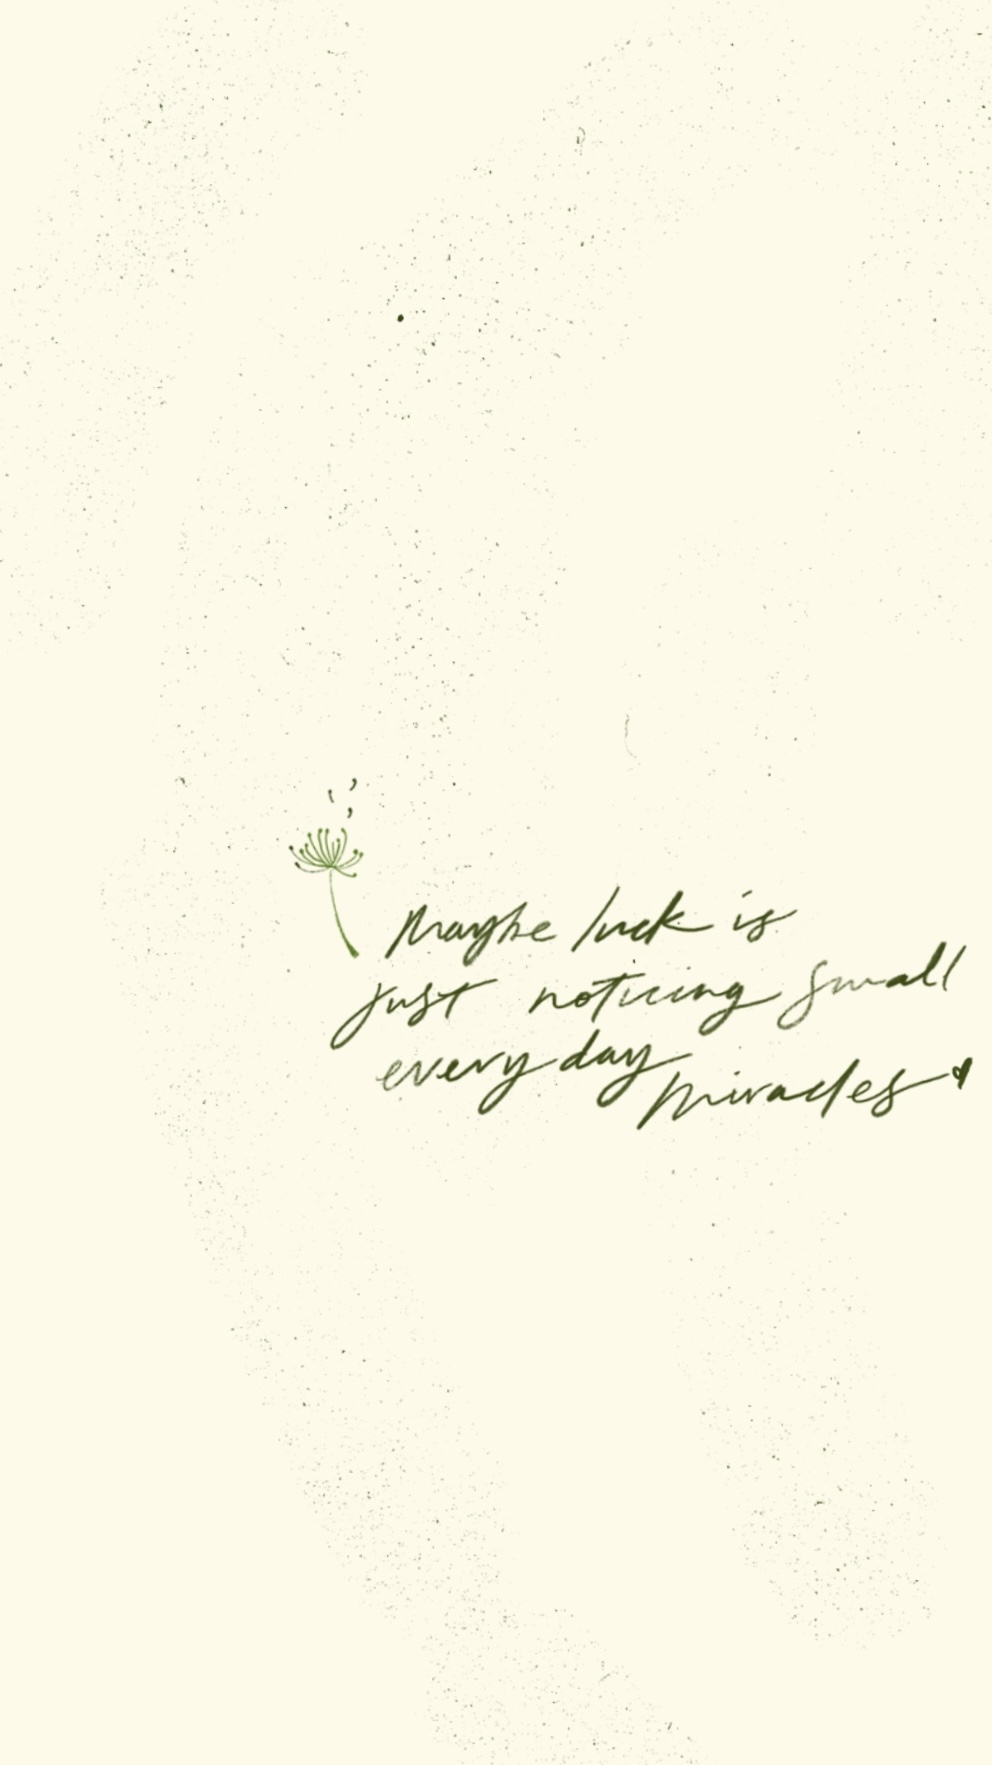 Maybe luck is
just noticing small
every day miracles